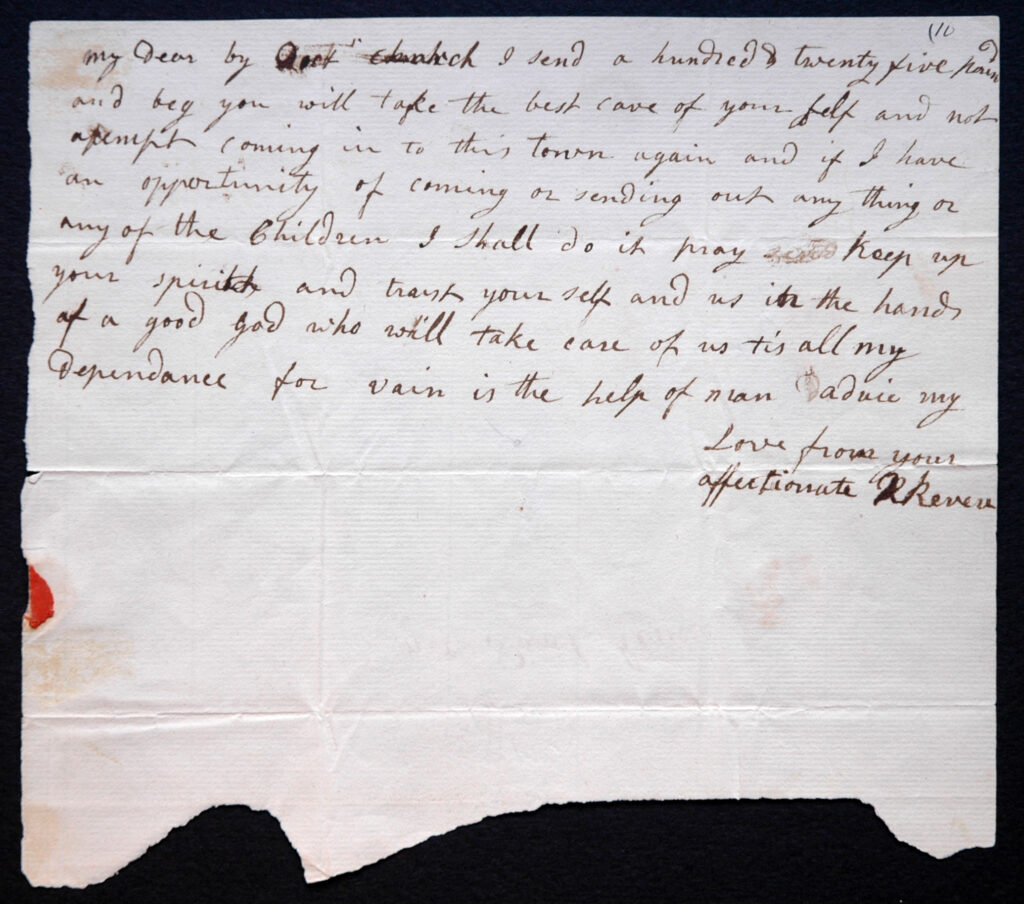 (10
my Dear by Doctr Church I send a hundred & twenty five pound
and beg you will take the best care of your self and not
atempt coming in to this town again and if I have
an opportunity of coming or sending out any thing or
any of the Children I shall do it pray keep up
your spirits and trust your self and us in the hands
of a good god who will take care of us tis all my
Dependance for vain is the help of man advie my
Love from your
affectionate R Revere